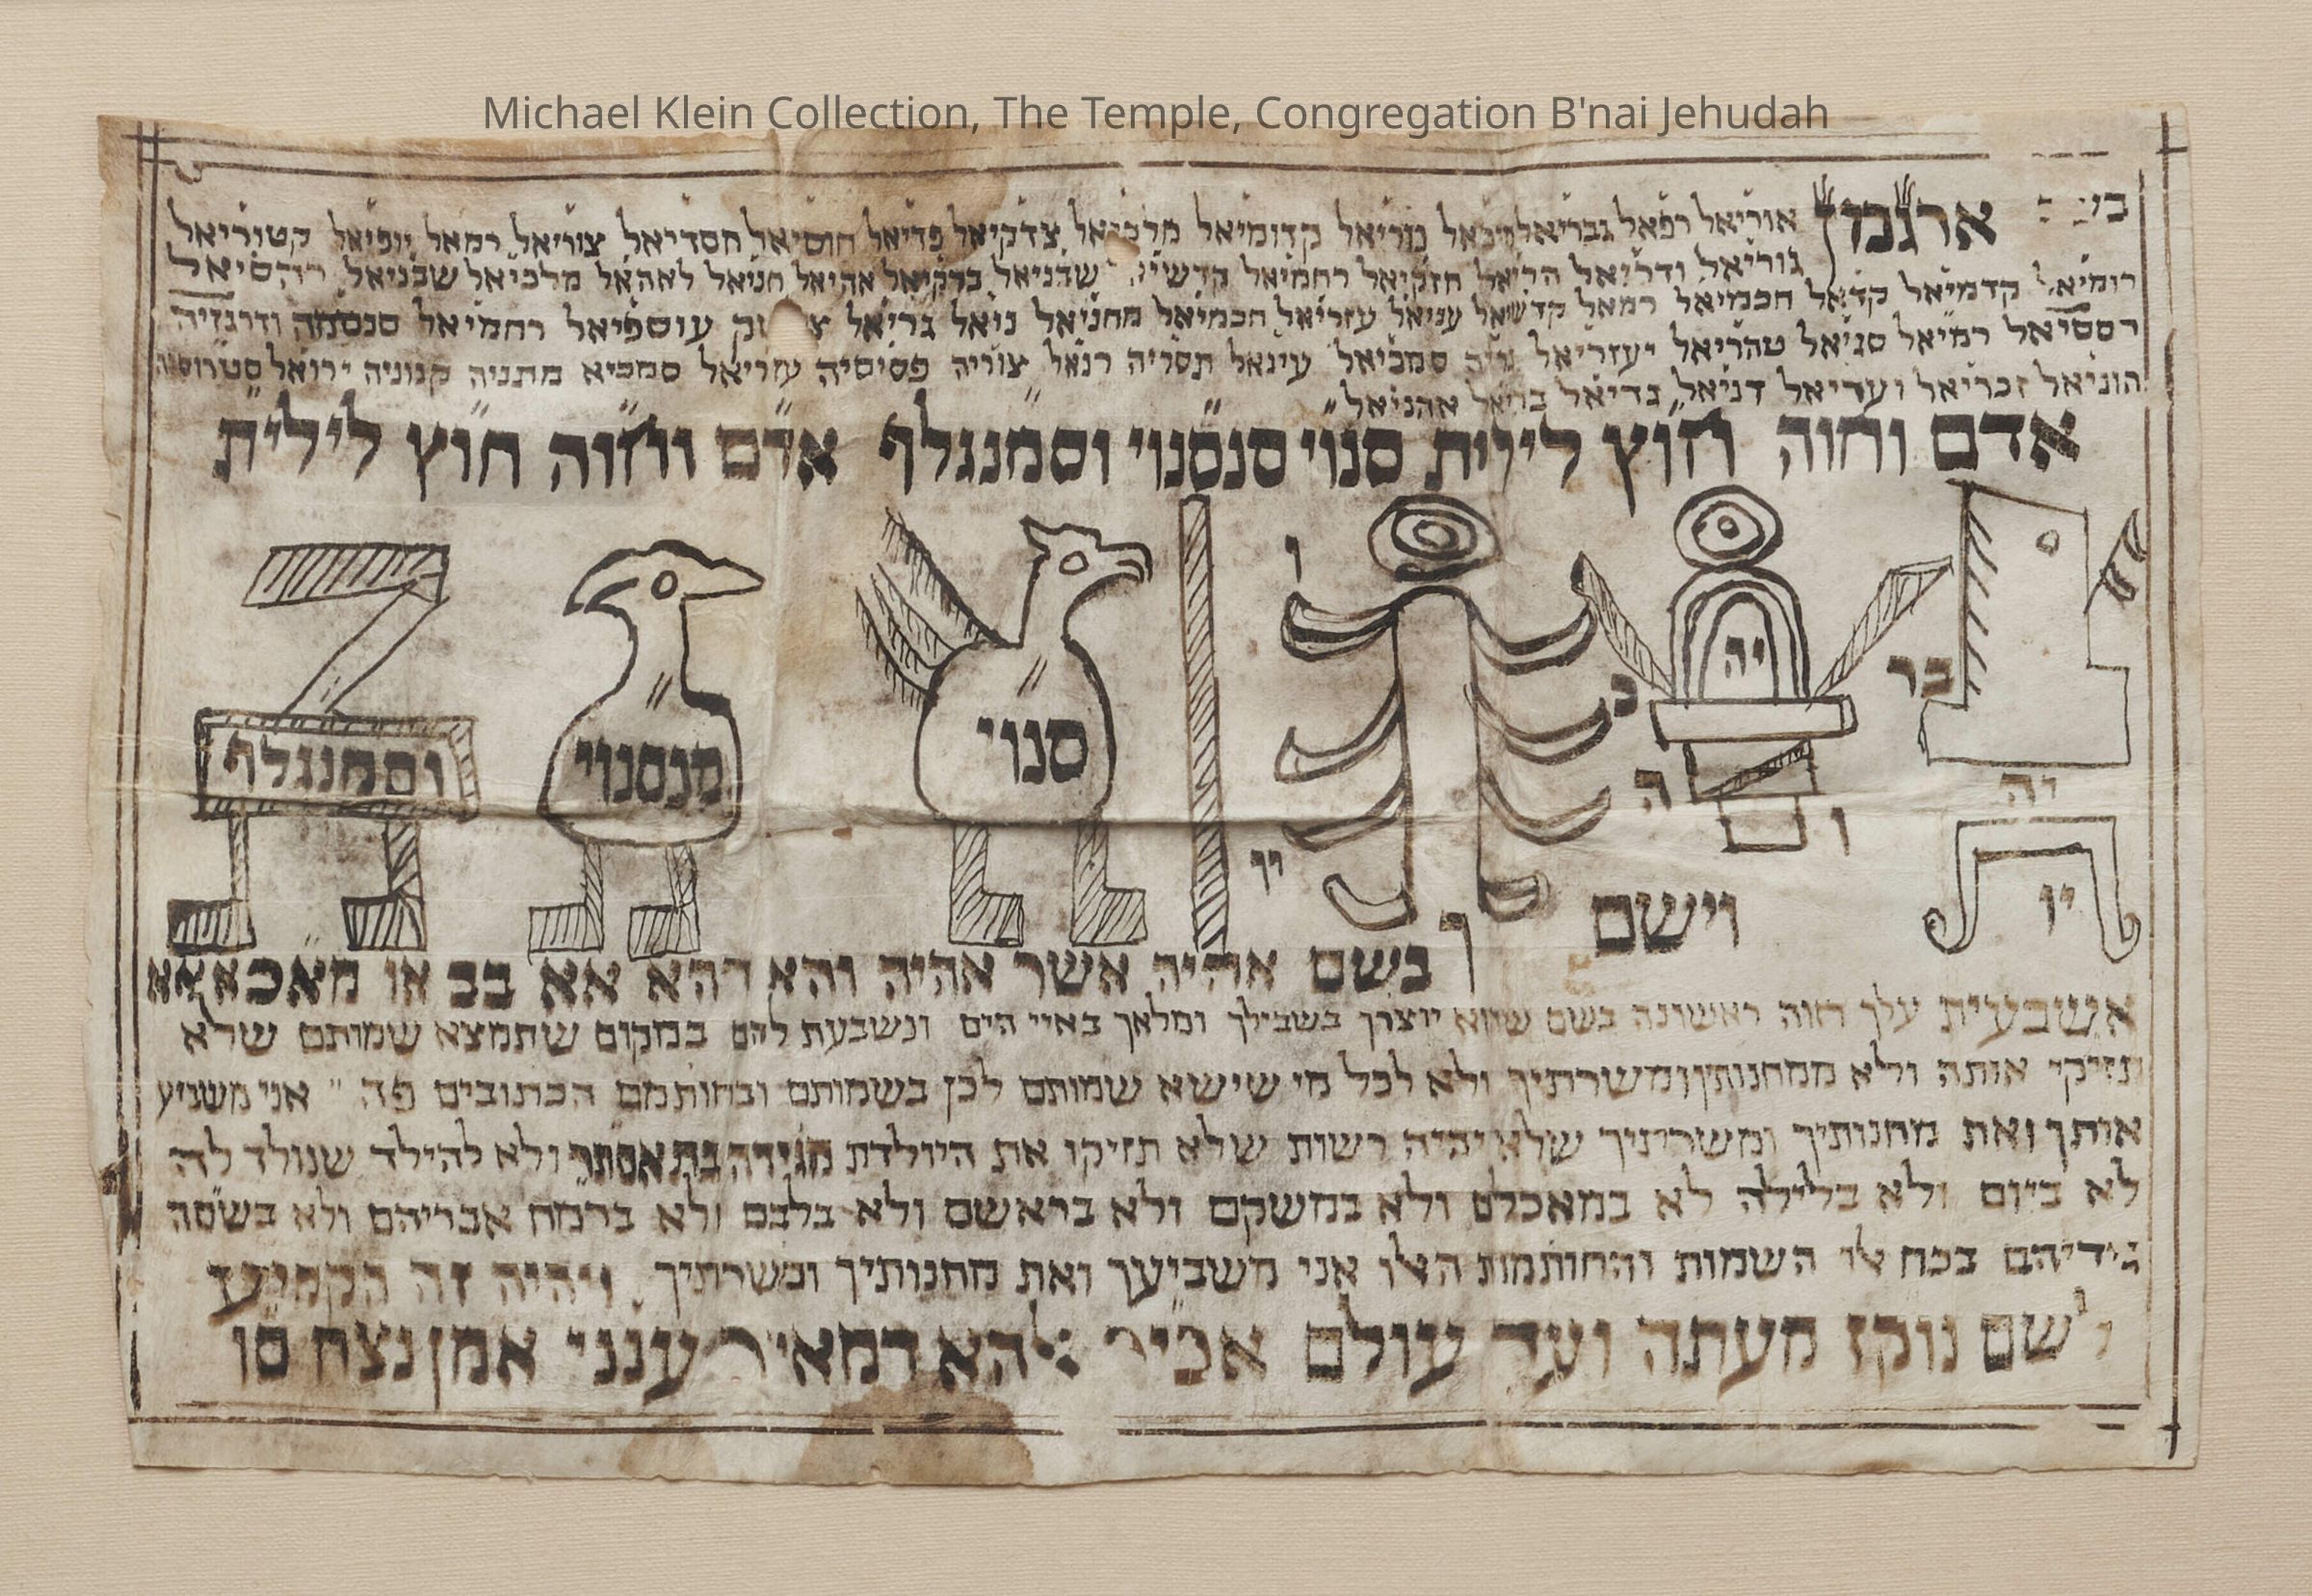 Michael Klein Collection, The Temple, Congregation B'nai Jehudah
ארגמן אוריאל רפאל גבריאל נוריאל קדומיאל צדקיאל פדיאל חוסיאל חסדיאל צוריאל רמאל יופיאל קטוריאל
גוריאל ודריאל הריאל חזקיאל רחמיאל שדניאל ברקיאל אהיאל חניאל לאהאל מלכיאל שבניאל רהסיאל
רומיאל קדמיאל קדאל חכמיאל רמאל קדשיאל ענואל עזריאל חכמיאל מחניאל ניאל גריאל עוספיאל רחמיאל סנסמה ודרגזיה
רססיאל רמיאל סגיאל טהריאל יעזריאל סמכיאל עינאל תסריה רנאל צוריה פסיסיה עזריאל סמכיא מתניה קנוניה ירואל
הוניאל זכריאל ועדיאל דניאל גדיאל בריאל אהניאל
אדם וחוה חוץ לילית סנוי סנסנוי וסמנגלף אדם וחוה חוץ לילית
בר
יה
יו
יה
כ
ה
ו
ו
יו
ך
וישם
סנוי
סנסנוי
וסמנגלף
בשם אהיה אשר אהיה והא דהא אא בב או מאכאאא
אשבעית עלך חוה ראשונה בשם שהוא יוצרך בשבילך ומלאך באיי הים ונשבעת להם במקום שתמצא שמותם שלא
תזיקי אותה ולא ממחנותיך ומשרתיך ולא לכל מי שישא שמותם לכן בשמותם ובחותמם הכתובים פה אני משביע
אותך ואת מחנותיך ומשרתיך שלא יהיה רשות שלא תזיקו את היולדת מגידה בת אסתר ולא להילד שנולד לה
לא ביום ולא בלילה לא במאכלם ולא במשקם ולא בראשם ולא בלבם ולא ברמח אבריהם ולא בשסה
גידיהם בכח אלו השמות והחותמות האלו אני משביעך ואת מחנותיך ומשרתיך ויהיה זה הקמיע
לשם נוקז מעתה ועד עולם אכיר דמאיר ענני אמן נצח סו